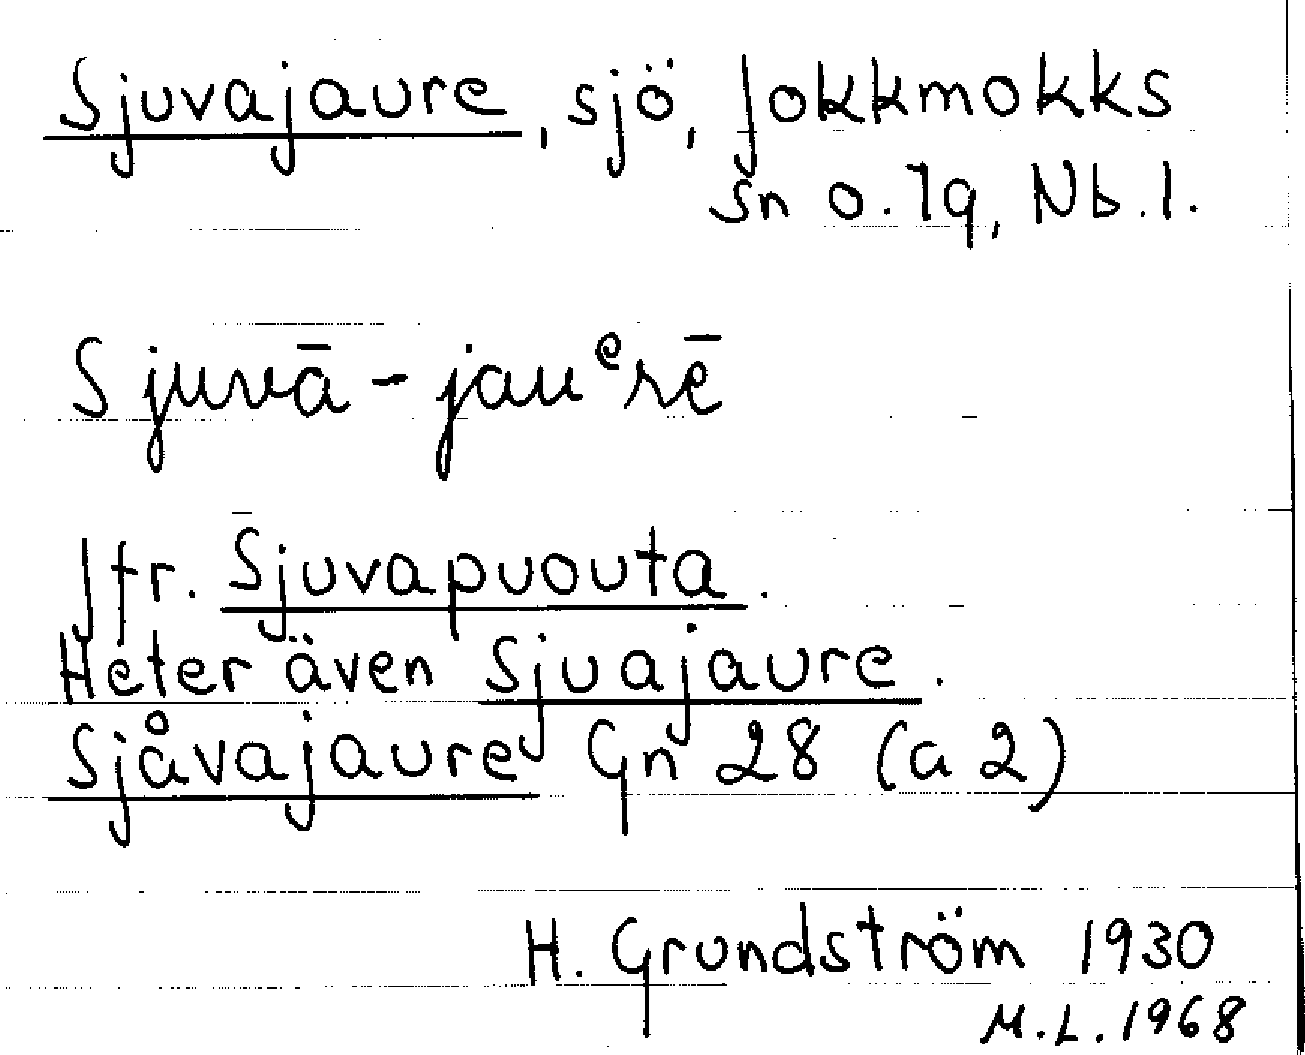 Sjuvajaure, sjö, Jokkmokks
sn o. lq, Nb.l.
Sjuvā-jauᵉrē
Jfr. Sjuvapuouta.
Heter även Sjuajaure.
Sjåvajaure Gn 28 (a 2)
H. Grundström 1930
M.L. 1968